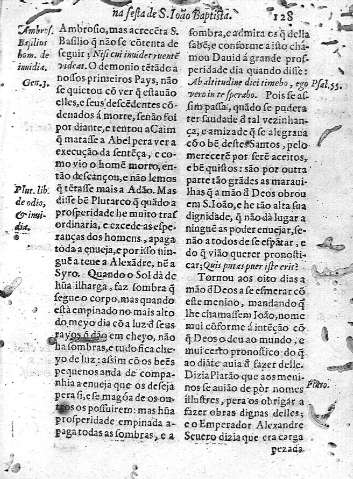 na festa de S. Ioão Baptista.
128
Ambros.
Basilius
hom. de
inuidia.
Gen.3.
Plut. lib.
de odio,
& inui-
dia.
Ambrosio, mas acrecẽta S.
Basilio q̃ não se cõtenta de
seguir; Nisi cui inuidet mortẽ
videat. O demonio tẽdo a
nossos primeiros Pays, não
se quietou cõ ver q̃ estauão
elles, e seus descẽdentes cõ-
denados á morte, senão foi
por diante, e tentou a Caim
q̃ matasse a Abel pera ver a
execução da sentẽça, e co-
mo vio o homẽ morto, en-
tão descançou, e não lemos
q̃ tẽtasse mais a Adão. Mas
disse bẽ Plutarco q̃ quãdo a
prosperidade he muito tras
ordinaria, e excede as espe-
ranças dos homens, apaga
toda a enueja, e por isso nin-
guẽ a teue a Alexãdre, nẽ a
Syro. Quando o Sol dá de
hũa ilharga, faz sombra q̃
segue o corpo, mas quando
está empinado no mais alto
do meyo dia cõ a luz de seus
rayos q̃ dão em cheyo, não
ha sombras, e tudo fica che-
yo de luz: assim cõ os bẽes
pequenos anda de compa-
nhia a enueja que os deseja
pera si, e se magóa de os ou-
tros os possuirem: mas hũa
prosperidade empinada a-
paga todas as sombras, e a
sombra, e admira es q̃ della
sabẽ; e conforme a isto cha-
mou Dauid á grande pros-
peridade dia quando disse:
Ab altitudine diei timebo, ego
vero in te sperabo. Pois se as-
sim passa, quãdo se pudera
ter saudade de tal vezinhan-
ça, e amizade q̃ se alegraua
cõ o bẽ deste Santos, pelo
merecerẽ por serẽ aceitos,
e bẽ quistos: são por outra
parte tão grãdes as maraui-
lhas q̃ a mão de Deos obrou
em S. Ioão, e he tão alta sua
dignidade, q̃ não dá lugar a
ninguẽ as poder enuejar, se-
não a todos de se espãtar, e
do q̃ vião querer pronosti-
car; Quis putas puer iste erit?
Tornou aos oito dias a
mão de Deos a se esmerar cõ
este menino, mandando q̃
lhe chamassem Ioão, nome
mui cõforme á intẽção cõ
q̃ Deos o deu ao mundo, e
mui certo pronostico do q̃
ao diãte auia de fazer delle.
Dizia Platão que aos meni-
nos se auião de pór nomes
illustres, pera os obrigar a
fazer obras dignas delles;
e o Emperador Alexandre
Seuero dizia que era carga
pezada
Psal.55.
Plato.